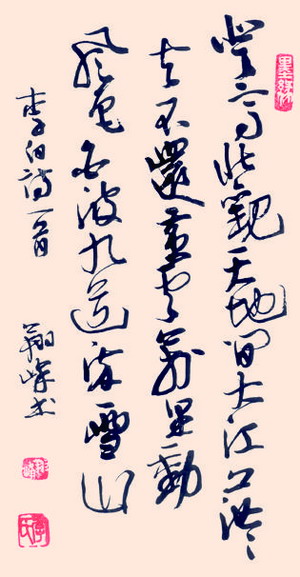 登高壮觀天地间大江茫茫
去不還黄雲萬里動
風色白波九道流雪山
李白诗一首
翔峰书
墨缘